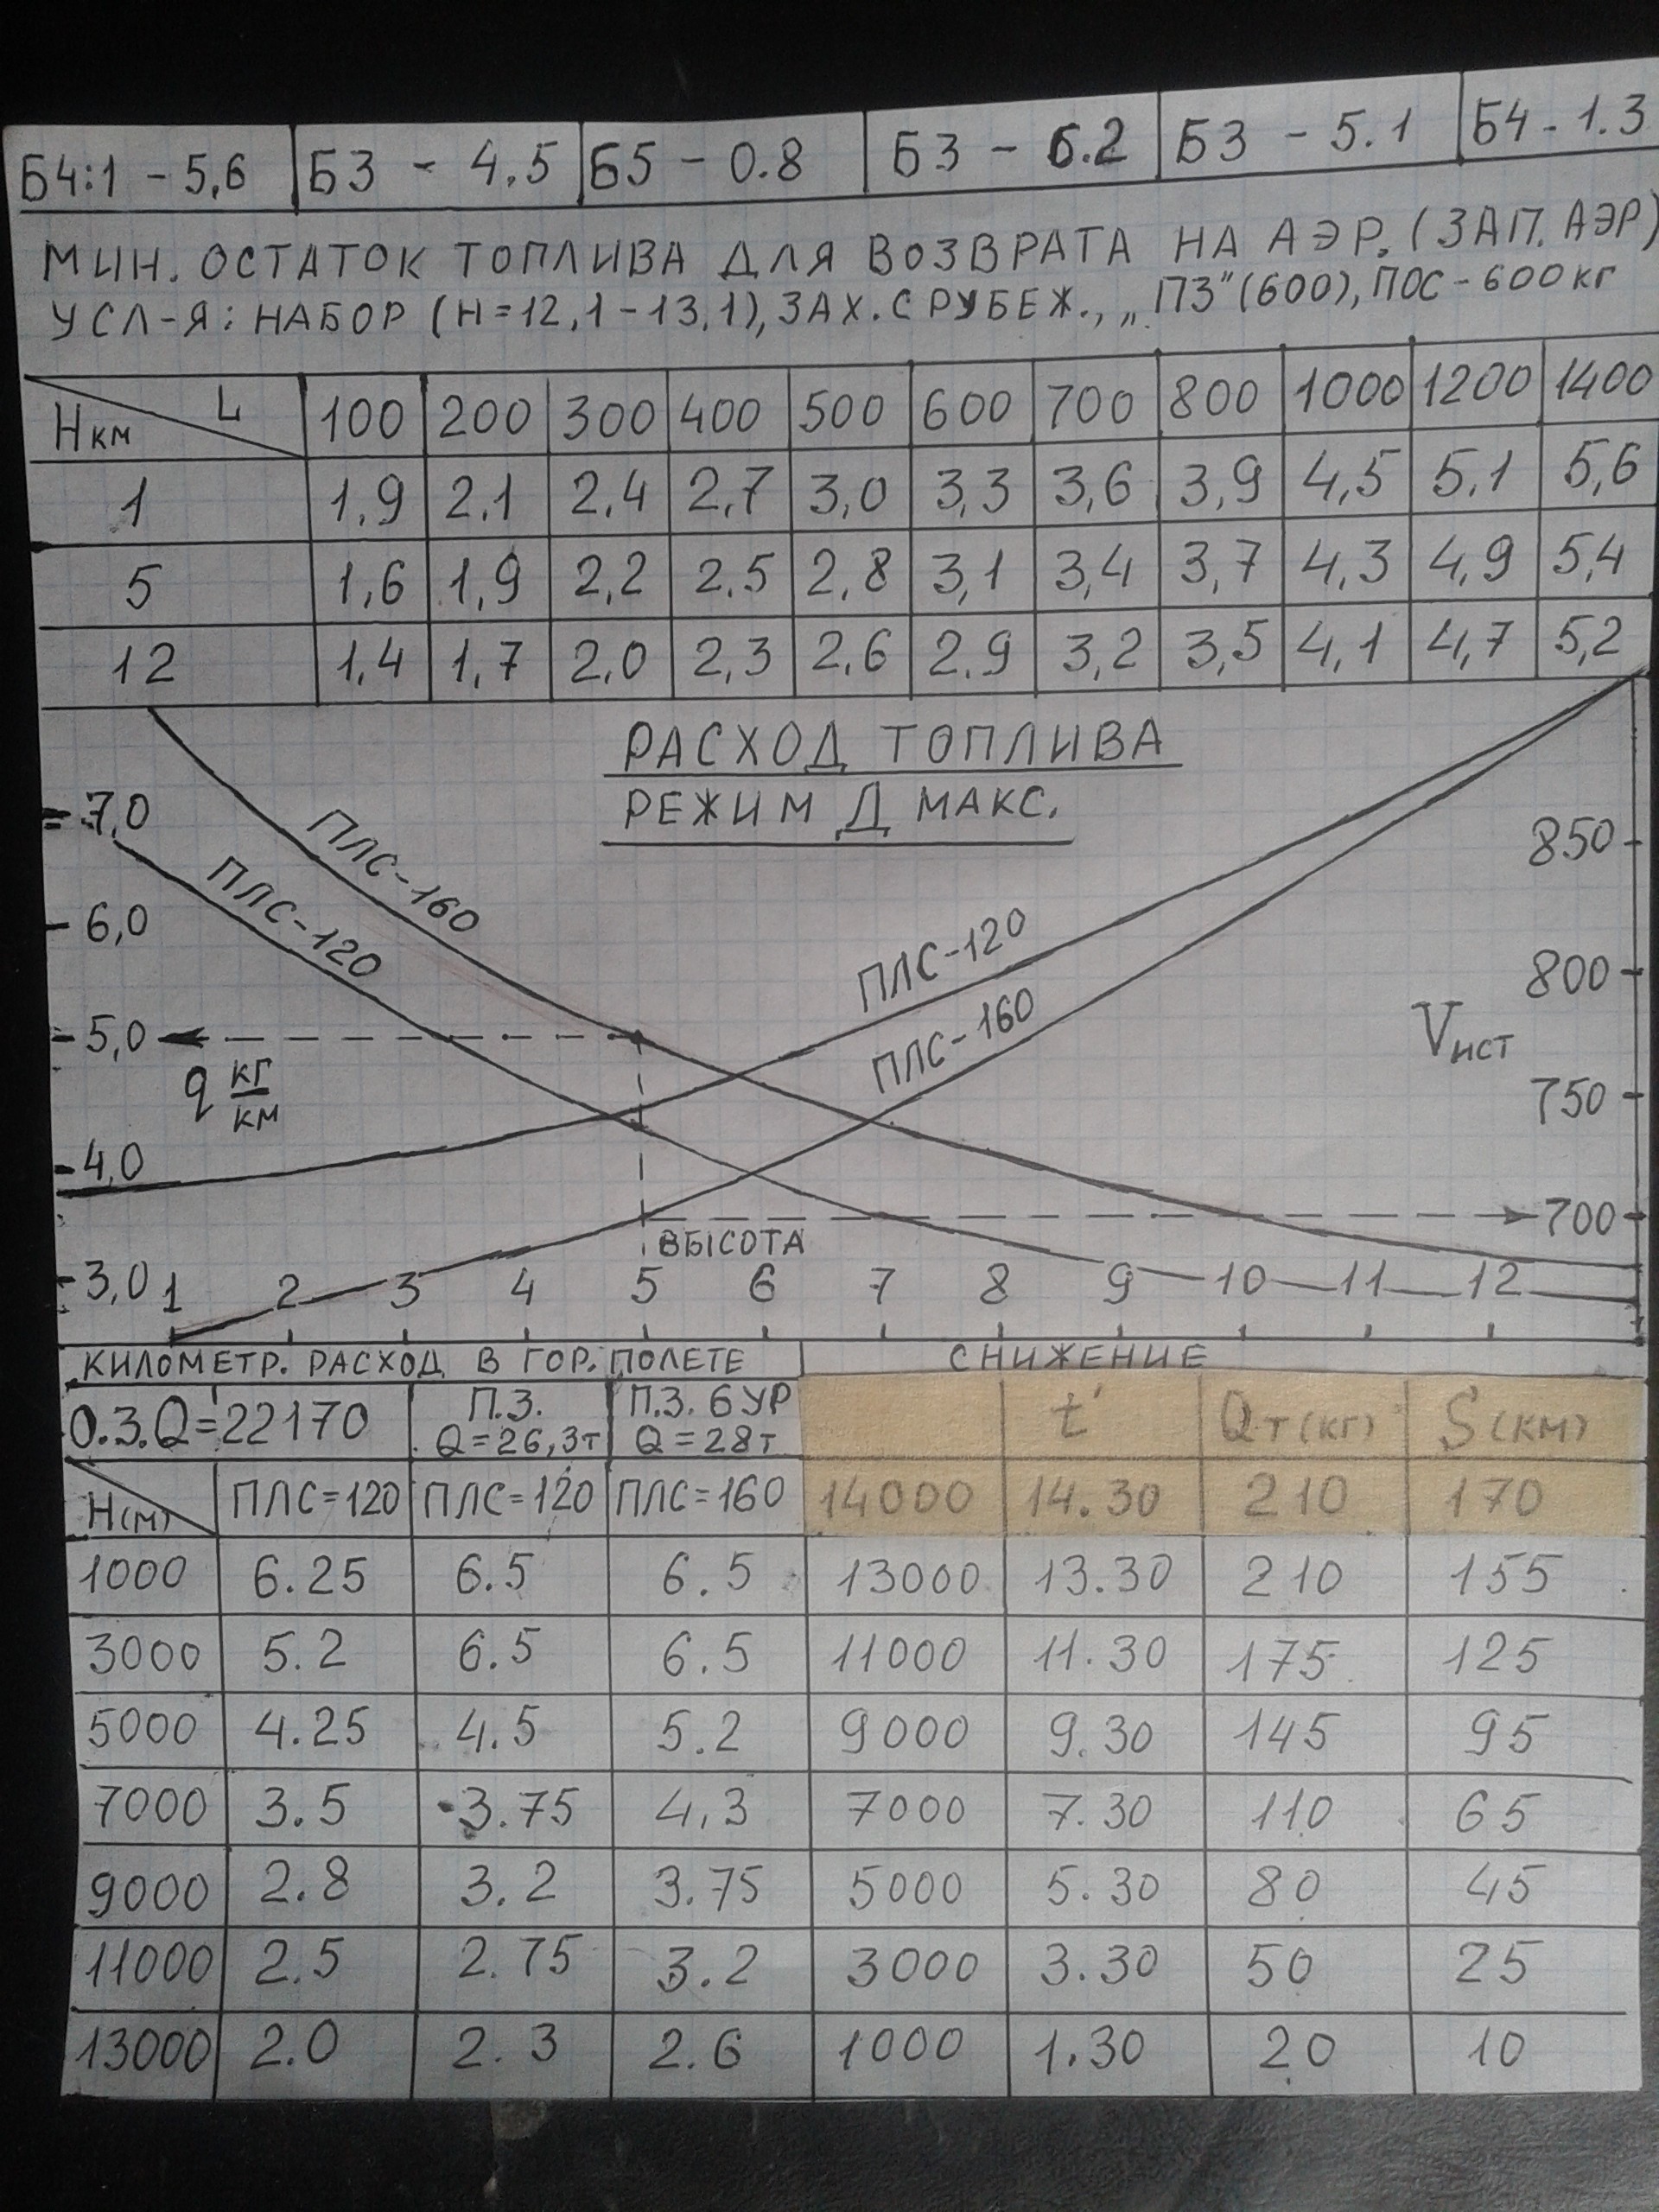 Б4:1 - 5,6 Б3 - 4.5 Б5 - 0.8 Б3 - 6.2 Б3 - 5.1 Б4 - 1.3
МИН. ОСТАТОК ТОПЛИВА ДЛЯ ВОЗВРАТА НА АЭР. (ЗАП. АЭР)
УСЛ-Я: НАБОР (Н=12,1-13,1), ЗАХ. С РУБЕЖ., „ПЗ" (600), ПОС - 600 КГ
Н км L 100 200 300 400 500 600 700 800 1000 1200 1400
1 1,9 2.1 2,4 2,7 3,0 3,3 3,6 3,9 4,5 5.1 5,6
5 1,6 1,9 2,2 2.5 2,8 3,1 3,4 3,7 4,3 4,9 5,4
12 1,4 1,7 2.0 2,3 2,6 2.9 3,2 3,5 4,1 4,7 5,2
РАСХОД ТОПЛИВА
РЕЖИМ Д МАКС.
7,0
ПЛС-160
850
ПЛС-120
6,0
ПЛС-120
800
5,0
ПЛС-160
Vист
q кг/км
750
4,0
700
ВЫСОТА
3,0 1 2 3 4 5 6 7 8 9 10 11 12
КИЛОМЕТР. РАСХОД В ГОР. ПОЛЕТЕ СНИЖЕНИЕ
О.З.Q=22170 П.З. Q=26,3т П.З. 6 УР Q=28т t' Qт (кг) S (км)
Н(м) ПЛС=120 ПЛС=120 ПЛС=160 14000 14.30 210 170
1000 6.25 6.5 6.5 13000 13.30 210 155
3000 5.2 6.5 6.5 11000 11.30 175 125
5000 4.25 4.5 5.2 9000 9.30 145 95
7000 3.5 3.75 4,3 7000 7.30 110 65
9000 2.8 3.2 3.75 5000 5.30 80 45
11000 2.5 2.75 3.2 3000 3.30 50 25
13000 2.0 2.3 2.6 1000 1.30 20 10